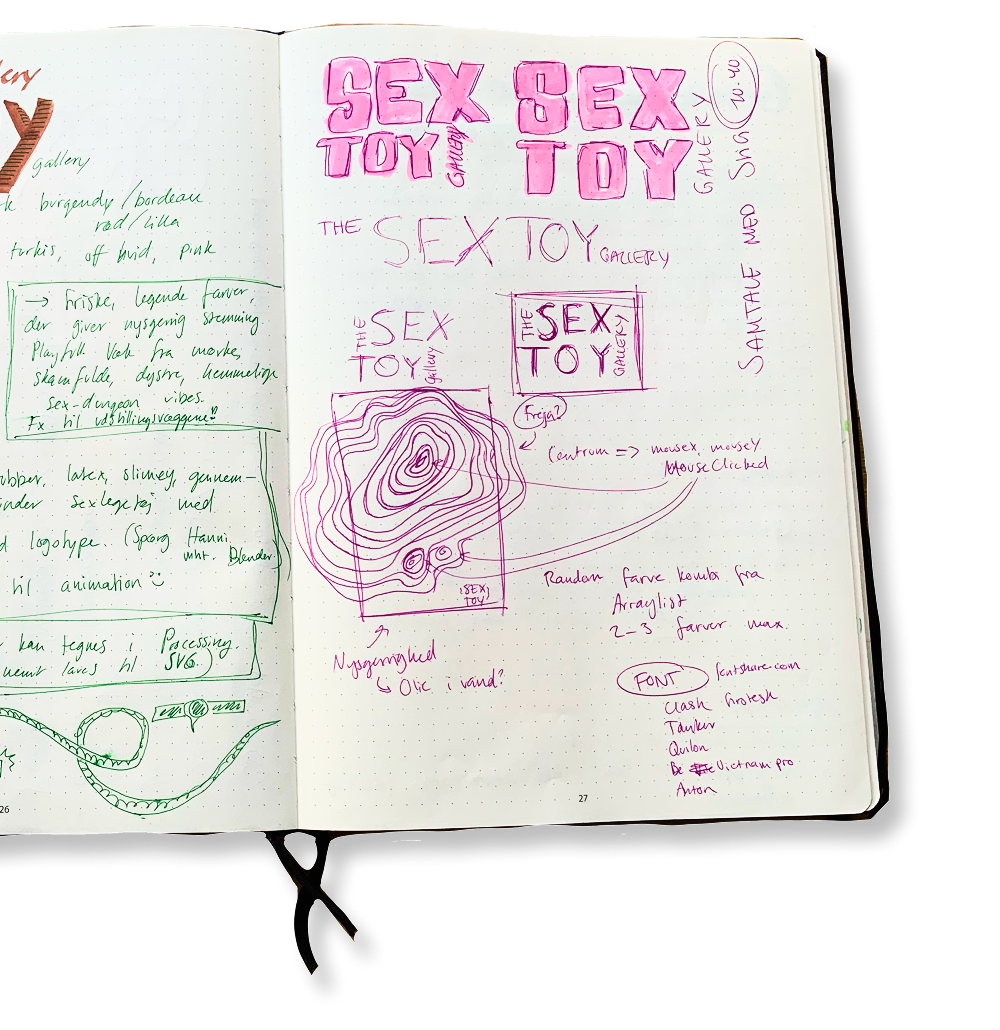 gallery
burgendy / bordeau
rød / lilla
turkis, off hvid, pink
→ Friske, legende farver,
der giver nysgerrig stemning
Playfull Væk fra mørke,
skamfulde, dystre, hemmelige
sex-dungeon vibes.
Fx til udstillingsvæggene?
latex, slimey, gennem-
sexlegetøj med
logotype. (Spørg Hanni
mht. Blender)
til animation
kan tegnes i Processing.
nemt laves til SVG)
26
SEX
TOY
GALLERY
SEX
TOY
GALLERY
20-40
SAMTALE MED
THE SEX TOY GALLERY
THE SEX
TOY gallery
THE SEX
TOY GALLERY
Freja?
Centrum => mousex, mousey
MouseClicked
SEX
TOY
Nysgerrighed
↳ Olie i vand?
Random farve kombi fra
Arraylist
2-3 farver max.
FONT fontshare.com
Clash Grotesk
Tanker
Quilon
Be Vietnam pro
Anton
27